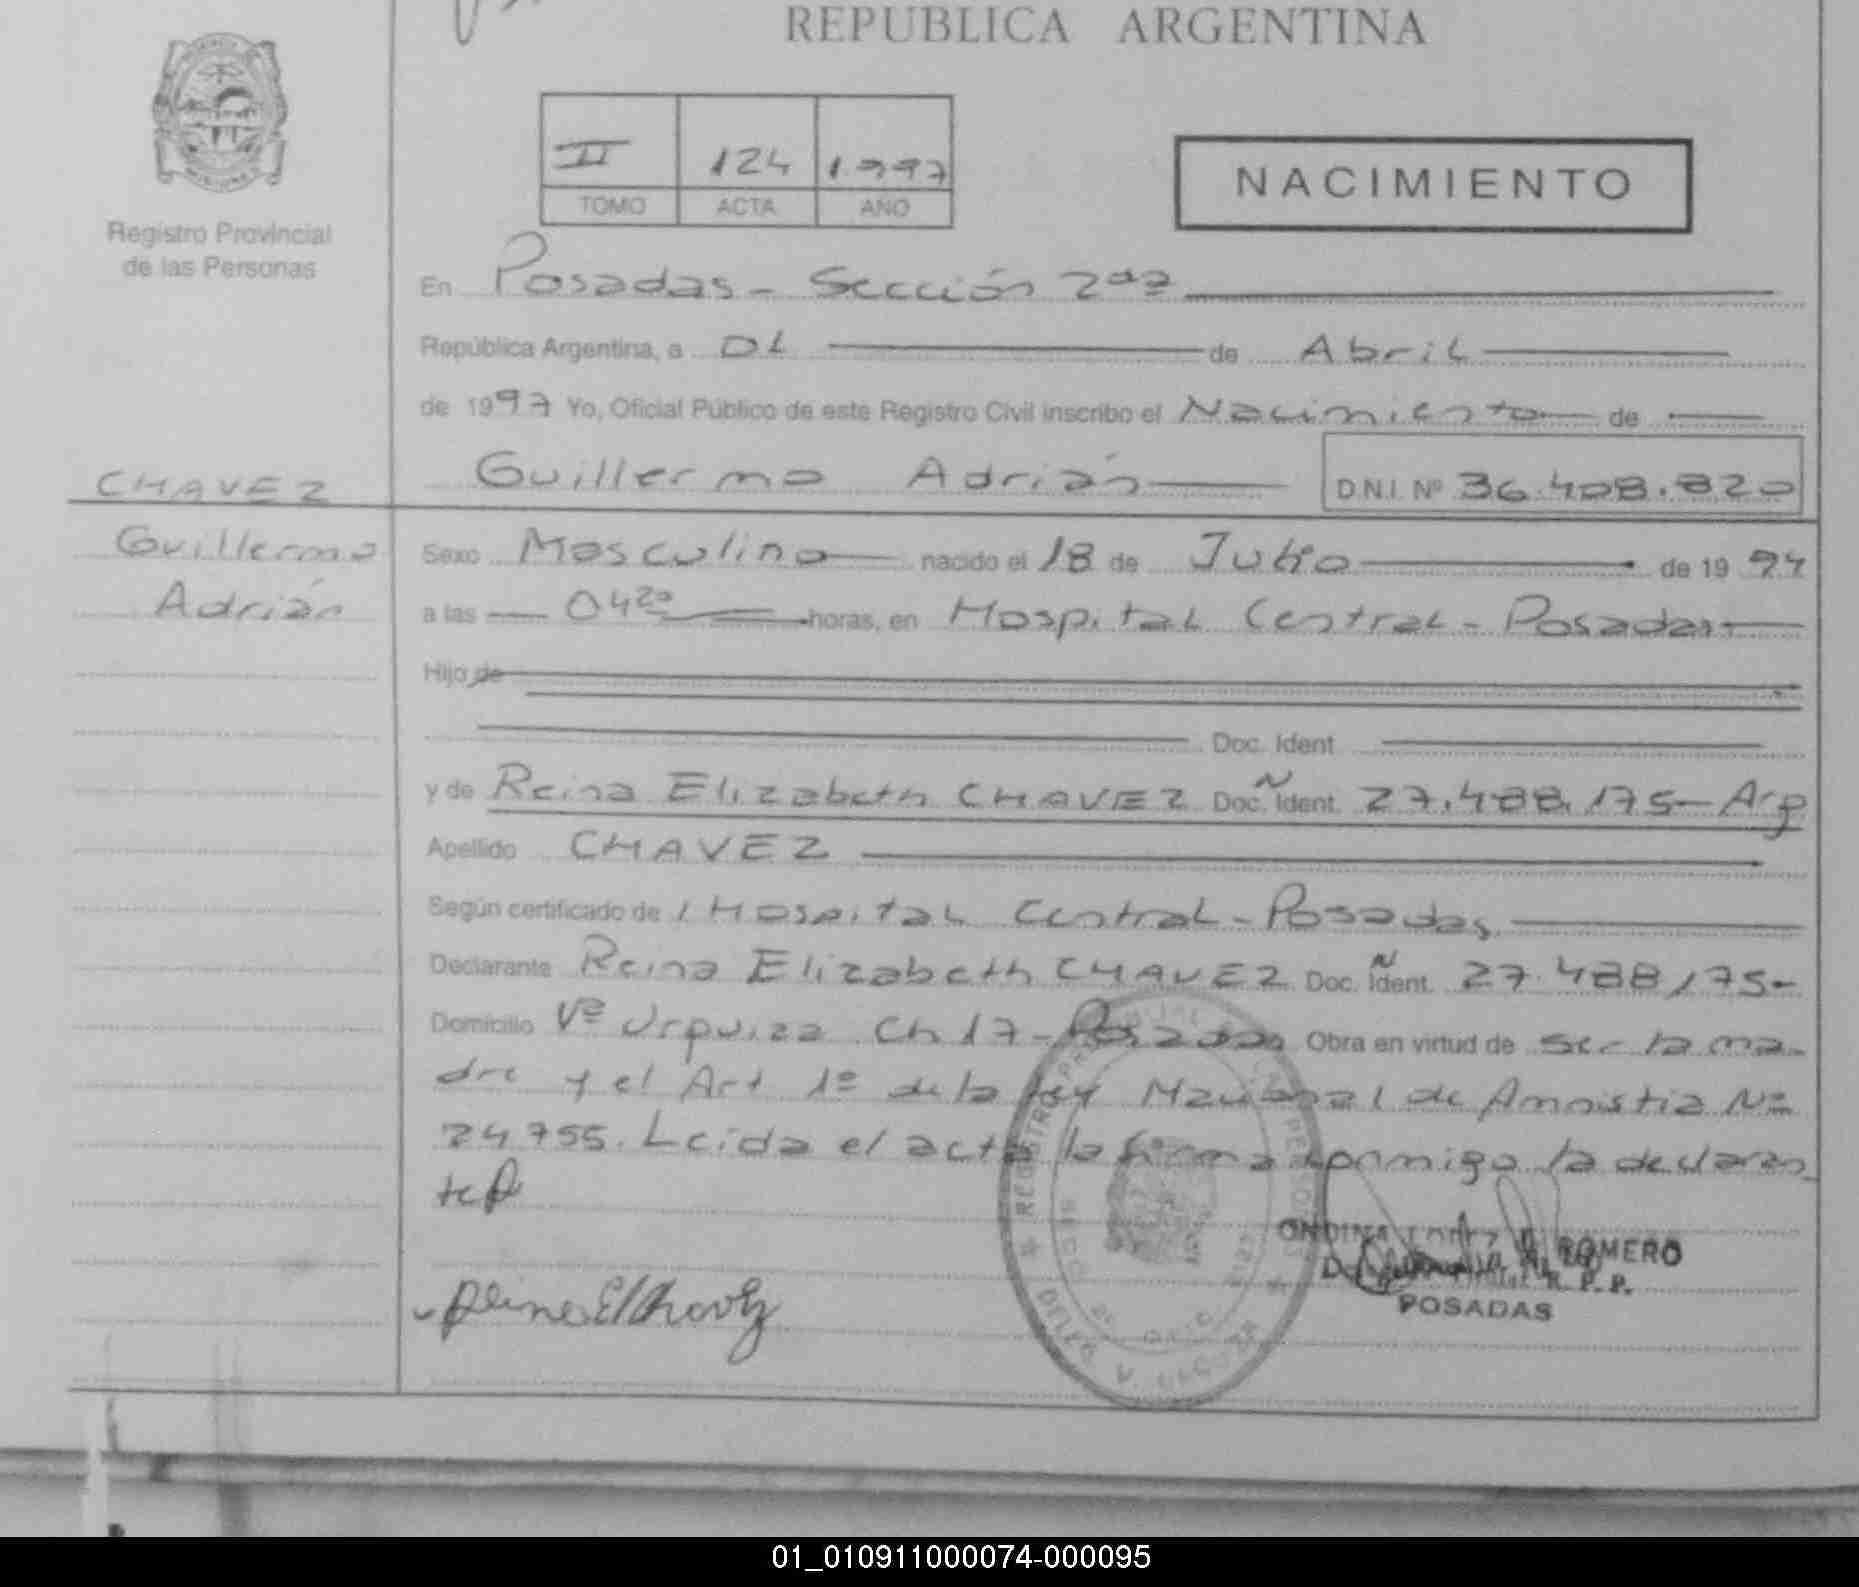 REPUBLICA ARGENTINA
II 124 1.997
TOMO ACTA AÑO
NACIMIENTO
Registro Provincial
de las Personas
En Posadas - Sección 2da
República Argentina, a 01 de Abril
de 1997 Yo, Oficial Público de este Registro Civil inscribo el Nacimiento de
CHAVEZ
Guillermo Adrián D.N.I. Nº 36.408.820
Guillermo
Adrián
Sexo Masculino nacido el 18 de Julio de 1994
a las 04 20 horas, en Hospital Central - Posadas
Hijo de
Doc. Ident
y de Reina Elizabeth CHAVEZ Doc. Ident. 27.488.175 - Arg
Apellido CHAVEZ
Según certificado de Hospital Central - Posadas
Declarante Reina Elizabeth CHAVEZ Doc. Ident. 27.488.175-
Domicilio Vª Urquiza Ch 17 - Posadas Obra en virtud de ser la ma-
dre y el Art 1º de la ley Nacional de Amnistia Nº
24.755. Leida el acta la firma conmigo la declaran
te
Reina E Chavez
ROMERO
R. P. P.
POSADAS
01_010911000074-000095